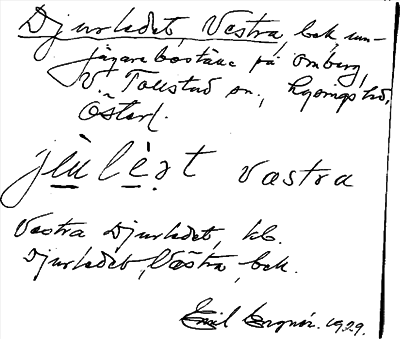 Djurledet, Västra, bek. un-
jägarebostäue på Omberg,
V. Tollstad sn., Lysings hd,
Österl.
jùlèət västra
Västra Djurledet, kb.
Djurledet, Västra, bek.
Emil 1929.